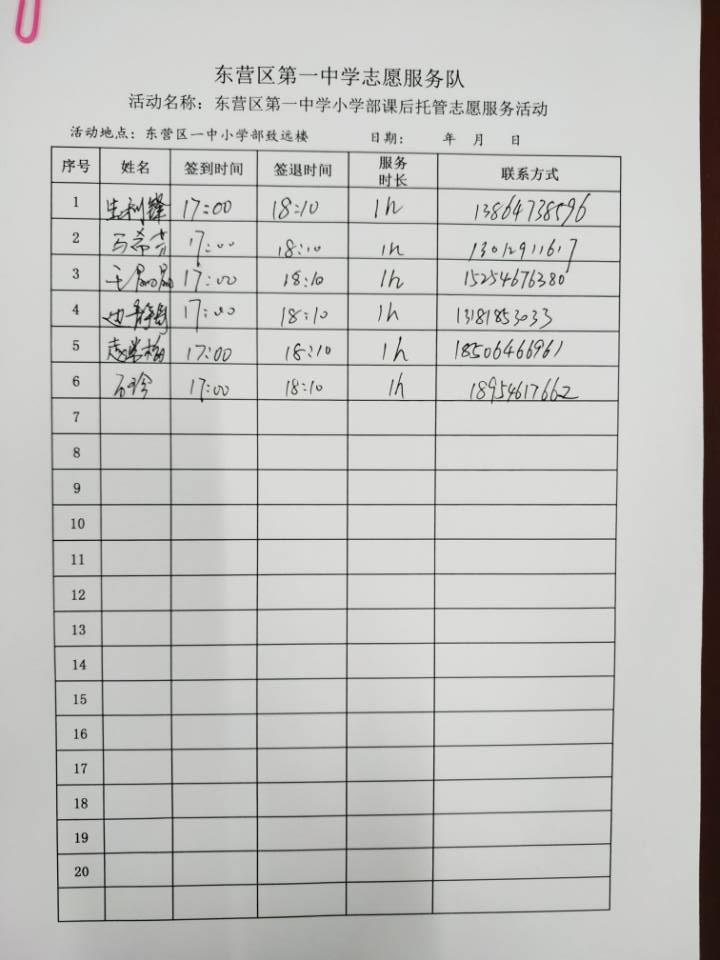 东营区第一中学志愿服务队
活动名称：东营区第一中学小学部课后托管志愿服务活动
活动地点：东营区一中小学部致远楼 日期： 年 月 日
序号 姓名 签到时间 签退时间 服务时长 联系方式
1 生利锋 17:00 18:10 1h 13864738596
2 马希芳 17:00 18:10 1h 13012911617
3 王晶晶 17:00 18:10 1h 15254676380
4 17:00 18:10 1h 13181853033
5 17:00 18:10 1h 18506466961
6 石玲 17:00 18:10 1h 18954617662
7
8
9
10
11
12
13
14
15
16
17
18
19
20